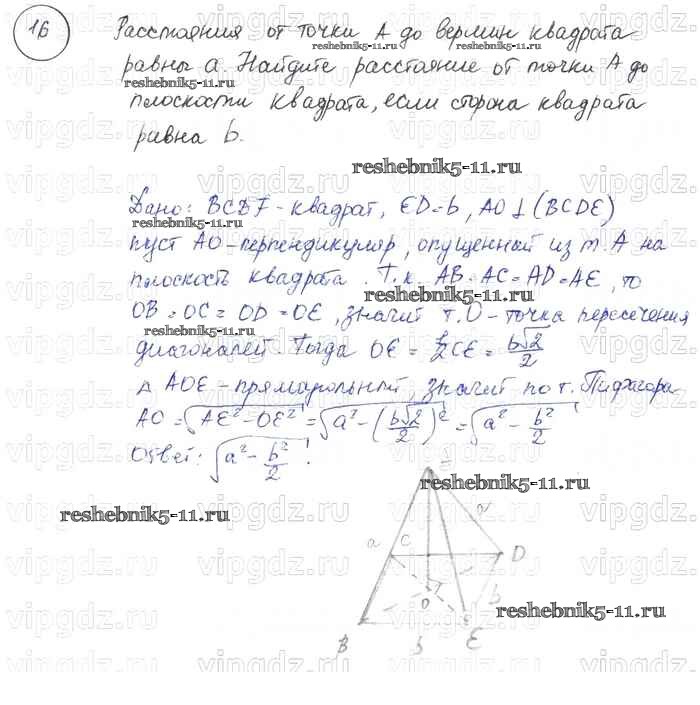 16
Расстояния от точки А до вершин квадрата
равны a. Найдите расстояние от точки А до
плоскости квадрата, если сторона квадрата
равна b.
Дано: BCDF - квадрат, ED=b, AO⊥(BCDE)
пуст AO - перпендикуляр, опущенный из т. А на
плоскость квадрата. Т.к. AB=AC=AD=AE, то
OB=OC=OD=OE, значит т.О - точка пересечения
диагоналей. Тогда OE = 1/2 CE = b√2/2
Δ AOE - прямоугольный, значит по т. Пифагора
AO = √(AE²-OE²) = √(a²-(b√2/2)²) = √(a²-b²/2)
Ответ: √(a²-b²/2).
a
a
C
D
O
b
B
b
E
reshebnik5-11.ru
reshebnik5-11.ru
reshebnik5-11.ru
reshebnik5-11.ru
reshebnik5-11.ru
reshebnik5-11.ru
reshebnik5-11.ru
reshebnik5-11.ru
reshebnik5-11.ru
vipgdz.ru